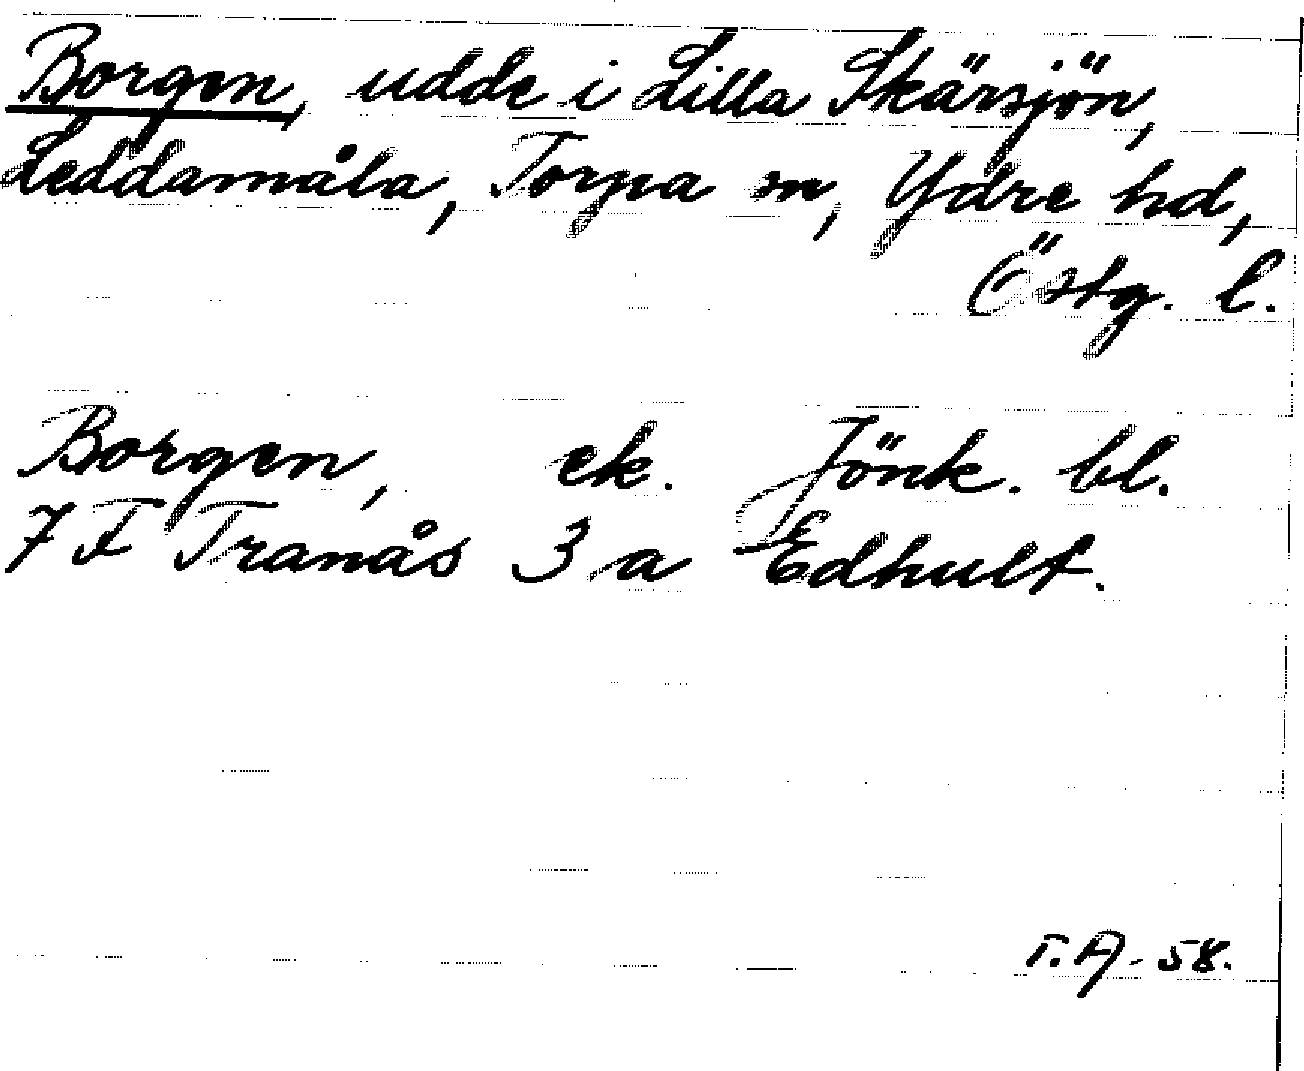 Borgen, udde i Lilla Skärsjön,
Leddamåla, Torpa sn, Ydre hd,
Östg. l.
Borgen, ek. Jönk. bl.
7 F Tranås 3 a Edhult.
T.A-58.